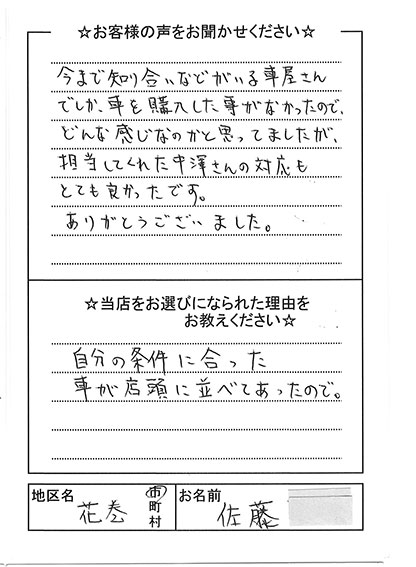 ☆お客様の声をお聞かせください☆
今まで知り合いなどがいる車屋さん
でしか、車を購入した事がなかったので、
どんな感じなのかと思ってましたが、
担当してくれた中澤さんの対応も
とても良かったです。
ありがとうございました。
☆当店をお選びになられた理由を
お教えください☆
自分の条件に合った
車が店頭に並べてあったので。
地区名 花巻 市町村
お名前 佐藤